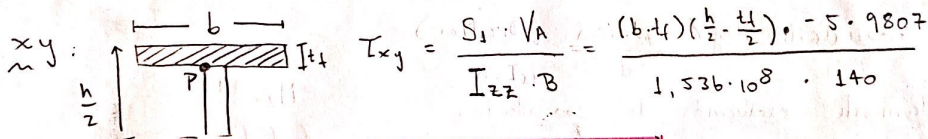 xy: b h/2 P tf τxy = S₁ · V_A / I_zz · B = (b·tf)(h/2 - tf/2) · -5 · 9807 / 1,536·10⁸ · 140